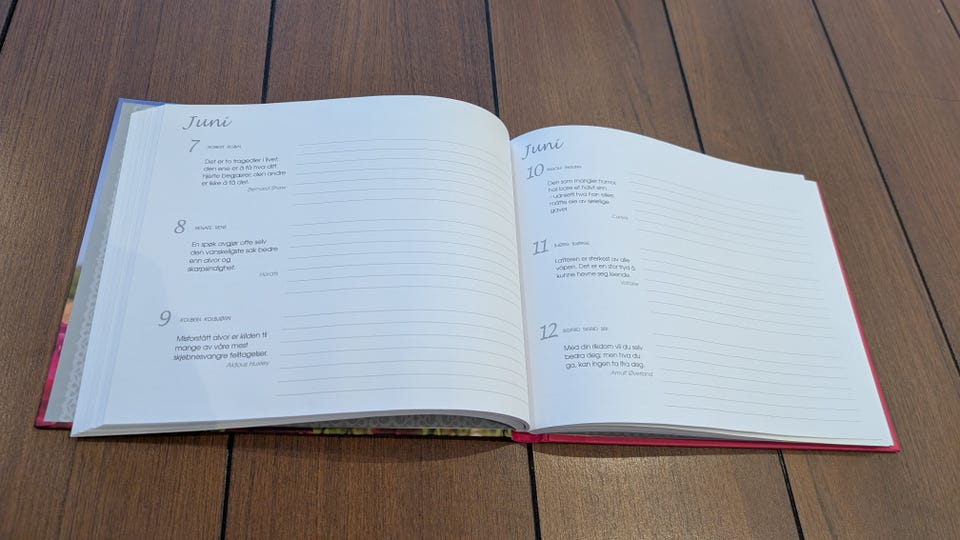 Juni
7 ROBERT ROBIN
Det er to tragedier i livet:
den ene er å få hva ditt
hjerte begjærer, den andre
er ikke å få det.
Bernard Shaw
8 RENATE RENÉ
En spøk avgjør ofte selv
den vanskeligste sak bedre
enn alvor og
skarpsindighet.
Horats
9 KOLBEIN KOLBJØRN
Misforstått alvor er kilden til
mange av våre mest
skjebnesvangre feiltagelser.
Aldous Huxley
Juni
10
Den som mangler humor,
har bare et halvt sinn
- uansett hva han ellers
måtte eie av sjelelige
gaver.
11
Latteren er sterkest av alle
våpen. Det er en stor fryd å
kunne hevne seg leende.
Voltaire
12 SIGFRID SIGRID SIRI
Med din rikdom vil du selv
bedra deg; men hva du
ga, kan ingen ta ifra deg.
Arnulf Øverland